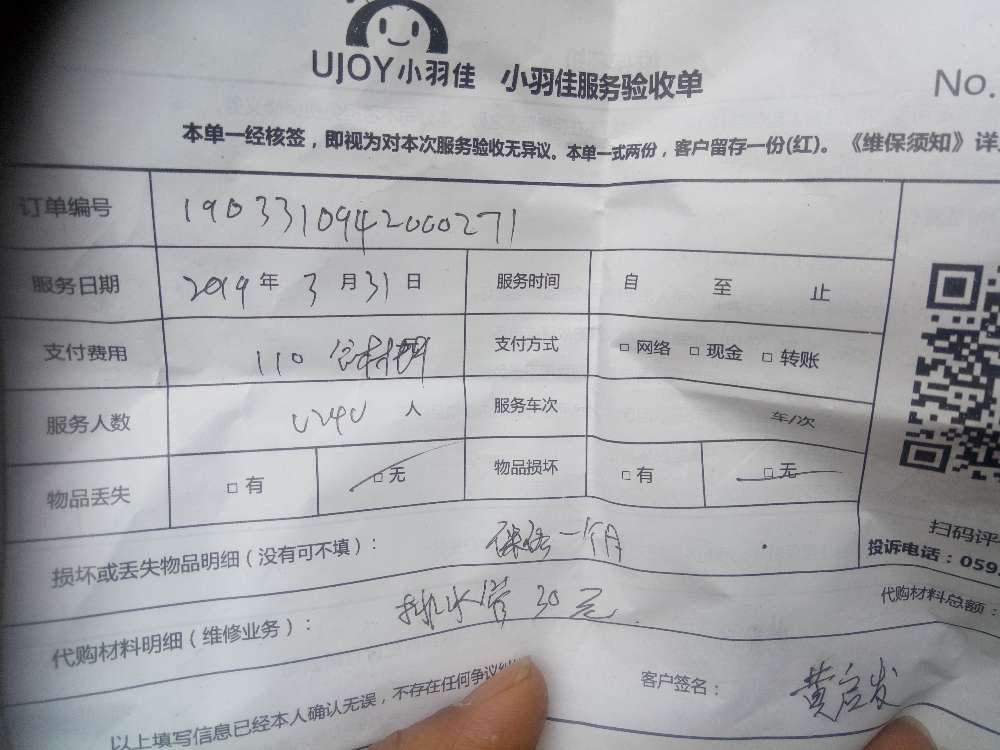 UJOY小羽佳 小羽佳服务验收单 No.
本单一经核签，即视为对本次服务验收无异议。本单一式两份，客户留存一份(红)。《维保须知》详
订单编号 1903310942000271
服务日期 2019 年 3 月 31 日 服务时间 自 至 止
支付费用 110 含材料 支付方式 □ 网络 □ 现金 □ 转账
服务人数 人 服务车次 车/次
物品丢失 □ 有 □ 无 物品损坏 □ 有 □ 无
扫码评
损坏或丢失物品明细（没有可不填）： 保修一个月 投诉电话：059
代购材料明细（维修业务）： 排水管 30 元 代购材料总额：
以上填写信息已经本人确认无误，不存在任何争议 客户签名： 黄启发